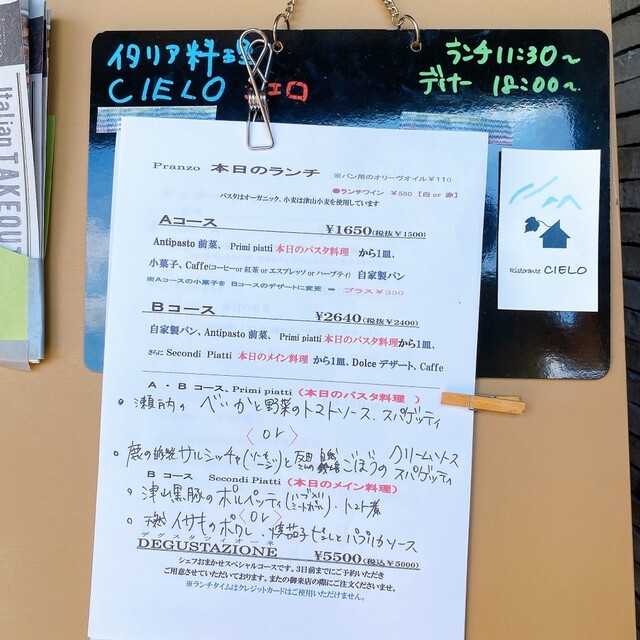 イタリア料理
CIELO チェロ
ランチ11:30〜
ディナー 18:00〜
Italian TAKEOUT
Pranzo 本日のランチ ※パン用のオリーヴオイル¥110
●ランチワイン ¥550【白 or 赤】
パスタはオーガニック、小麦は津山小麦を使用しています
Aコース ¥1650(税抜¥1500)
Antipasto 前菜、 Primi piatti 本日のパスタ料理 から1皿、
小菓子、Caffe(コーヒー or 紅茶 or エスプレッソ or ハーブティ) 自家製パン
※Aコースの小菓子を Bコースのデザートに変更 ➡ プラス¥330
Bコース ¥2640(税抜¥2400)
自家製パン、Antipasto 前菜、 Primi piatti 本日のパスタ料理から1皿、
さらに Secondi Piatti 本日のメイン料理 から1皿、Dolce デザート、Caffe
A・Bコース、Primi piatti (本日のパスタ料理 )
瀬戸内の べいかと野菜のトマトソース、スパゲッティ
〈or〉
鹿の自家製サルシッチャ(ソーセージ)と 自然栽培 ごぼうの クリームソース スパゲッティ
B コース Secondi Piatti (本日のメイン料理)
津山黒豚のポルペッティ(ハーブ入りミートボール)・トマト煮
〈or〉
天然 イサキのポワレ・焼茄子ピュレとパプリカソース
デグスタツィオーネ
DEGUSTAZIONE ¥5500(税込¥5000)
シェフおまかせスペシャルコースです。3日前までにご予約いただき
ご用意させていただいております。またの御来店の際にご注文くださいませ。
※ランチタイムはクレジットカードはご使用いただけません。
Ristorante CIELO